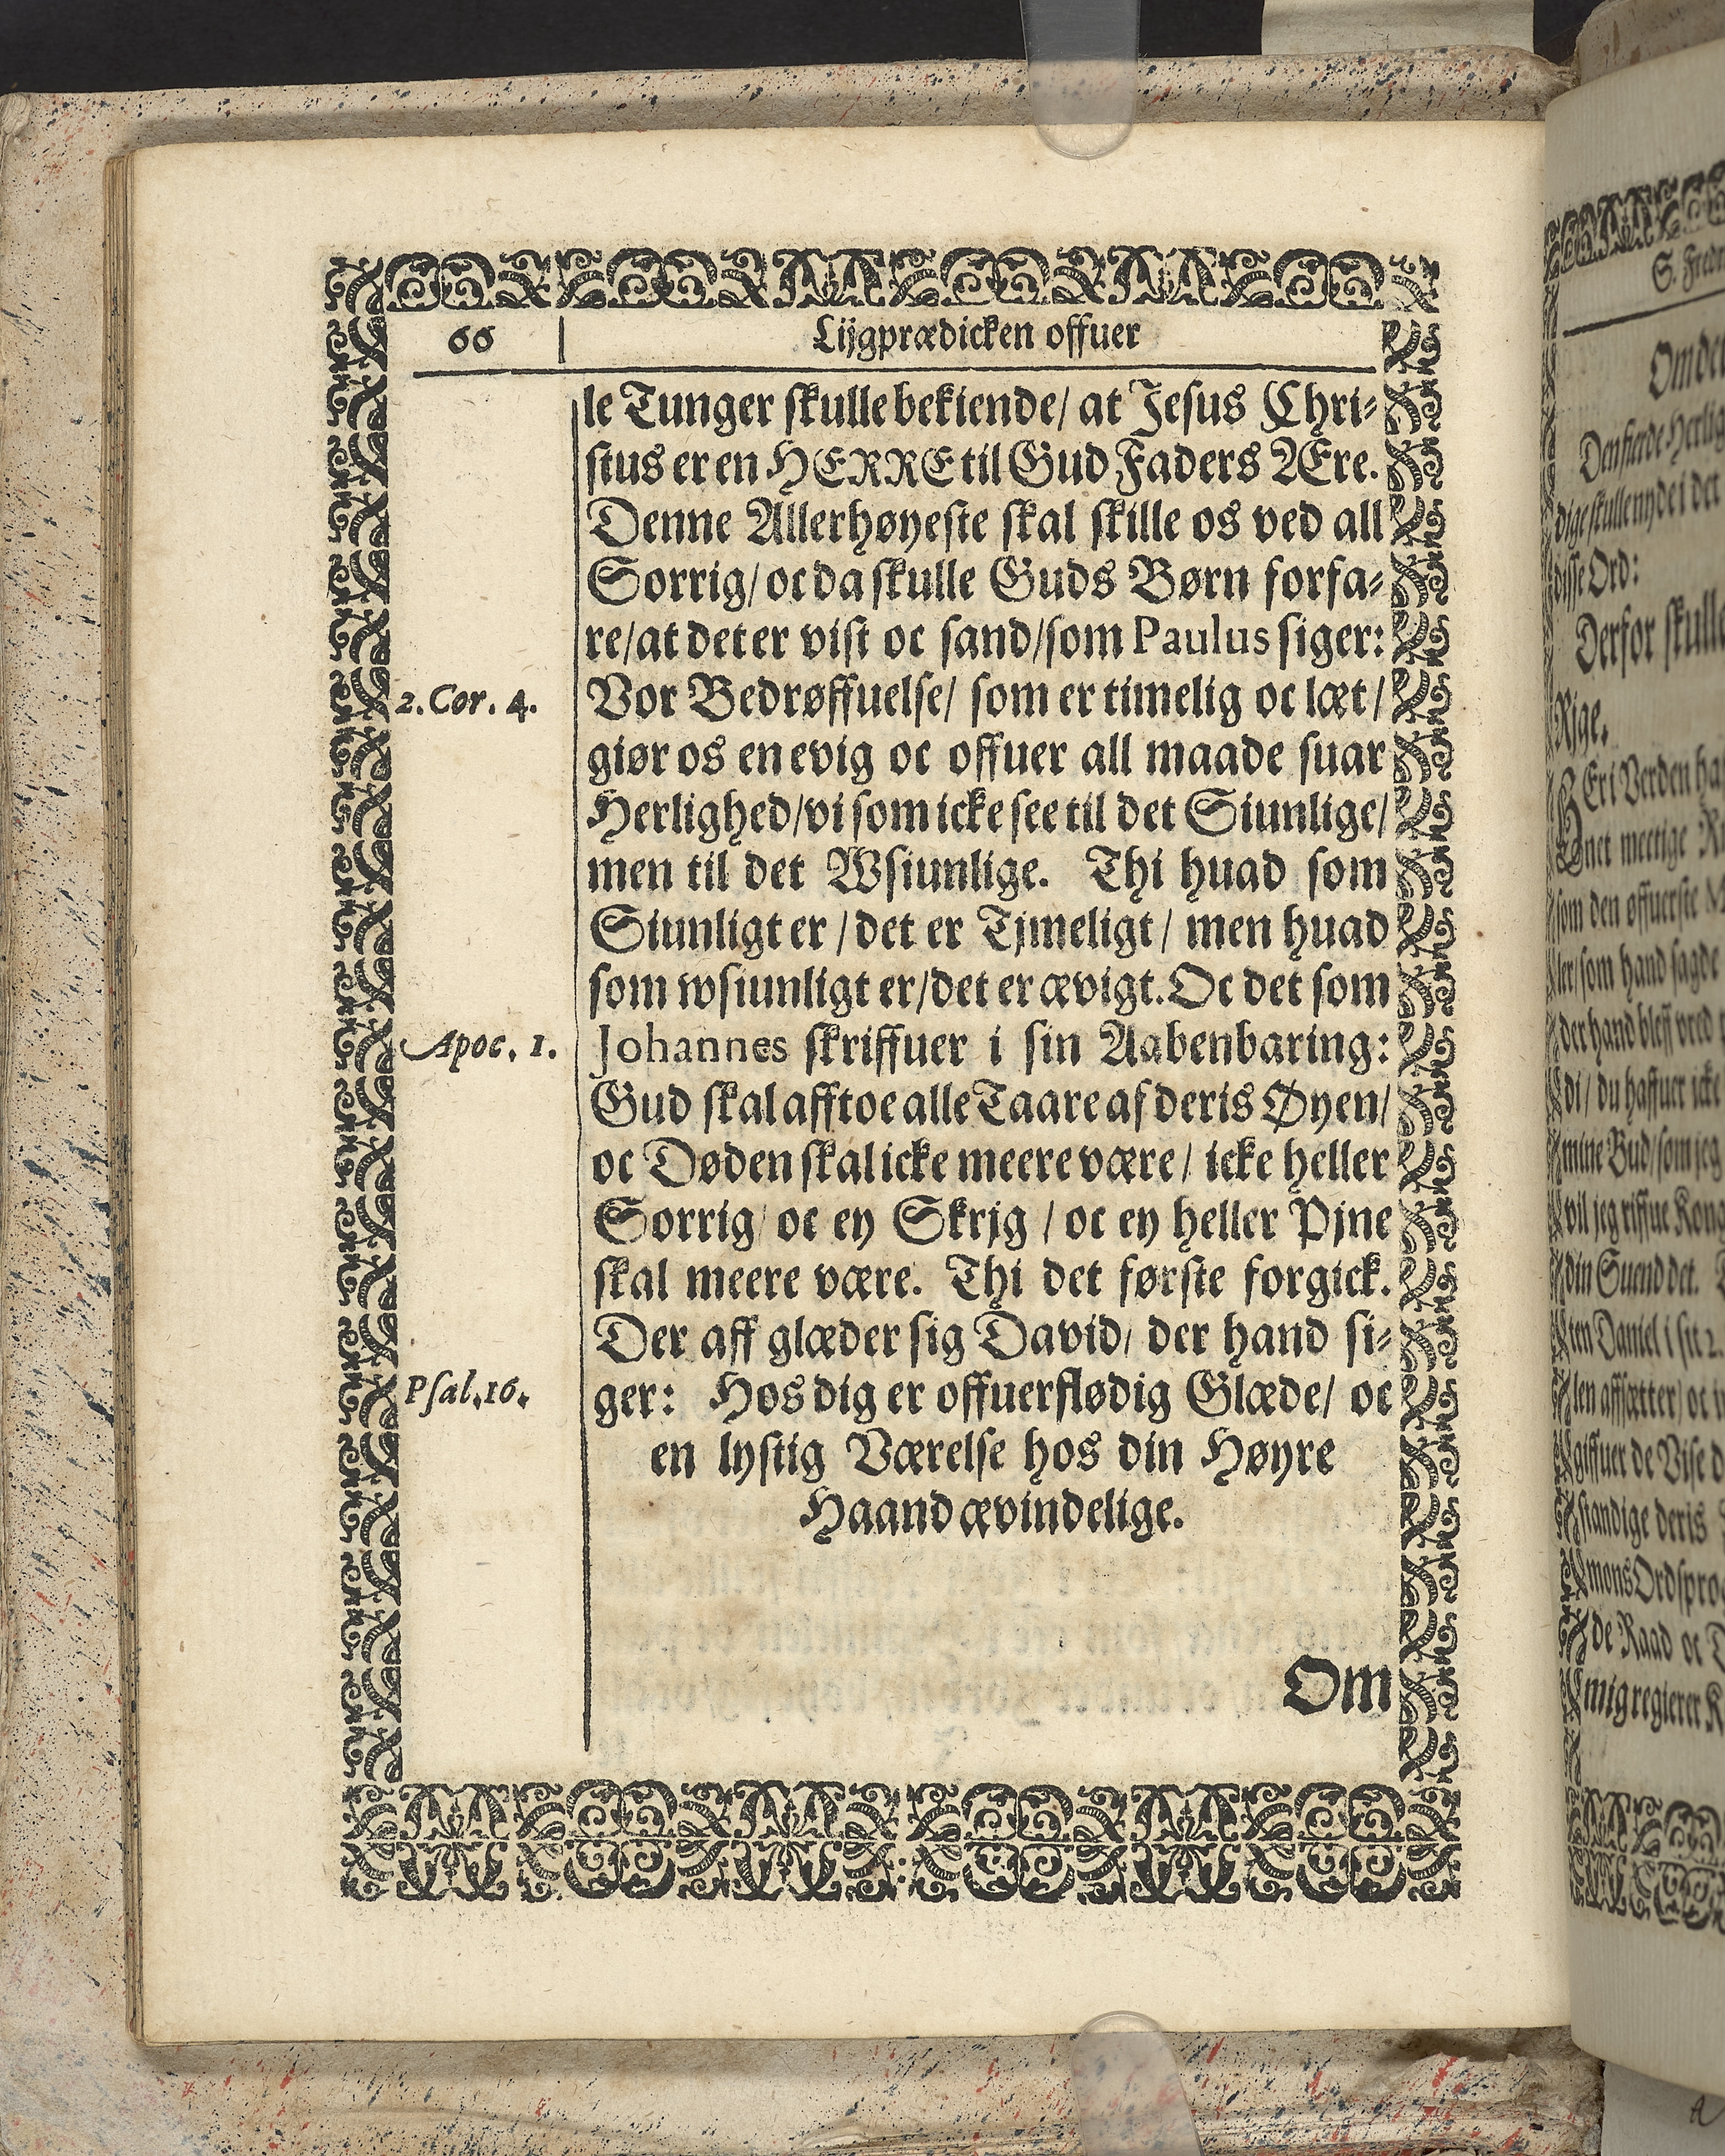 66
Lijgprædicken offuer
le Tunger skulle bekiende/ at Jesus Chri-
stus er en HERRE til Gud Faders Ære.
Denne Allerhøyeste skal skille os ved all
Sorrig/ oc da skulle Guds Børn forfa-
re/at det er vist oc sand/som Paulus siger:
2. Cor. 4.
Vor Bedrøffuelse/ som er timelig oc læt/
giør os en evig oc offuer all maade suar
Herlighed/vi som icke see til det Siunlige/
men til det Wsiunlige. Thi huad som
Siunligt er / det er Tjmeligt / men huad
som wsiunligt er/det er ævigt. Oc det som
Apoc. 1.
Johannes skriffuer i sin Aabenbaring:
Gud skal afftoe alle Taare af deris Øyen/
oc Døden skal icke meere være / icke heller
Sorrig/ oc ey Skrjg / oc ey heller Pjne
skal meere være. Thi det første forgick.
Der aff glæder sig David/ der hand si-
Psal. 16.
ger: Hos dig er offuerflødig Glæde/ oc
en lystig Værelse hos din Høyre
Haand ævindelige.
Om
S. Frede
Om den
Den fierde Herlig
dige skulle nyde i det
disse Ord:
Derfor skulle
Rige.
HEr i Verden ha
net mectige R
som den øffuerste
ler/som hand sagde
der hand bleff vred
di/ du haffuer icke
mine Bud/som jeg
vil jeg riffue Kong
din Suend det.
ten Daniel i sit 2.
len affsætter/ oc
giffuer de Vise
standige deris
mons Ordspro
de Raad oc D
mig regierer K